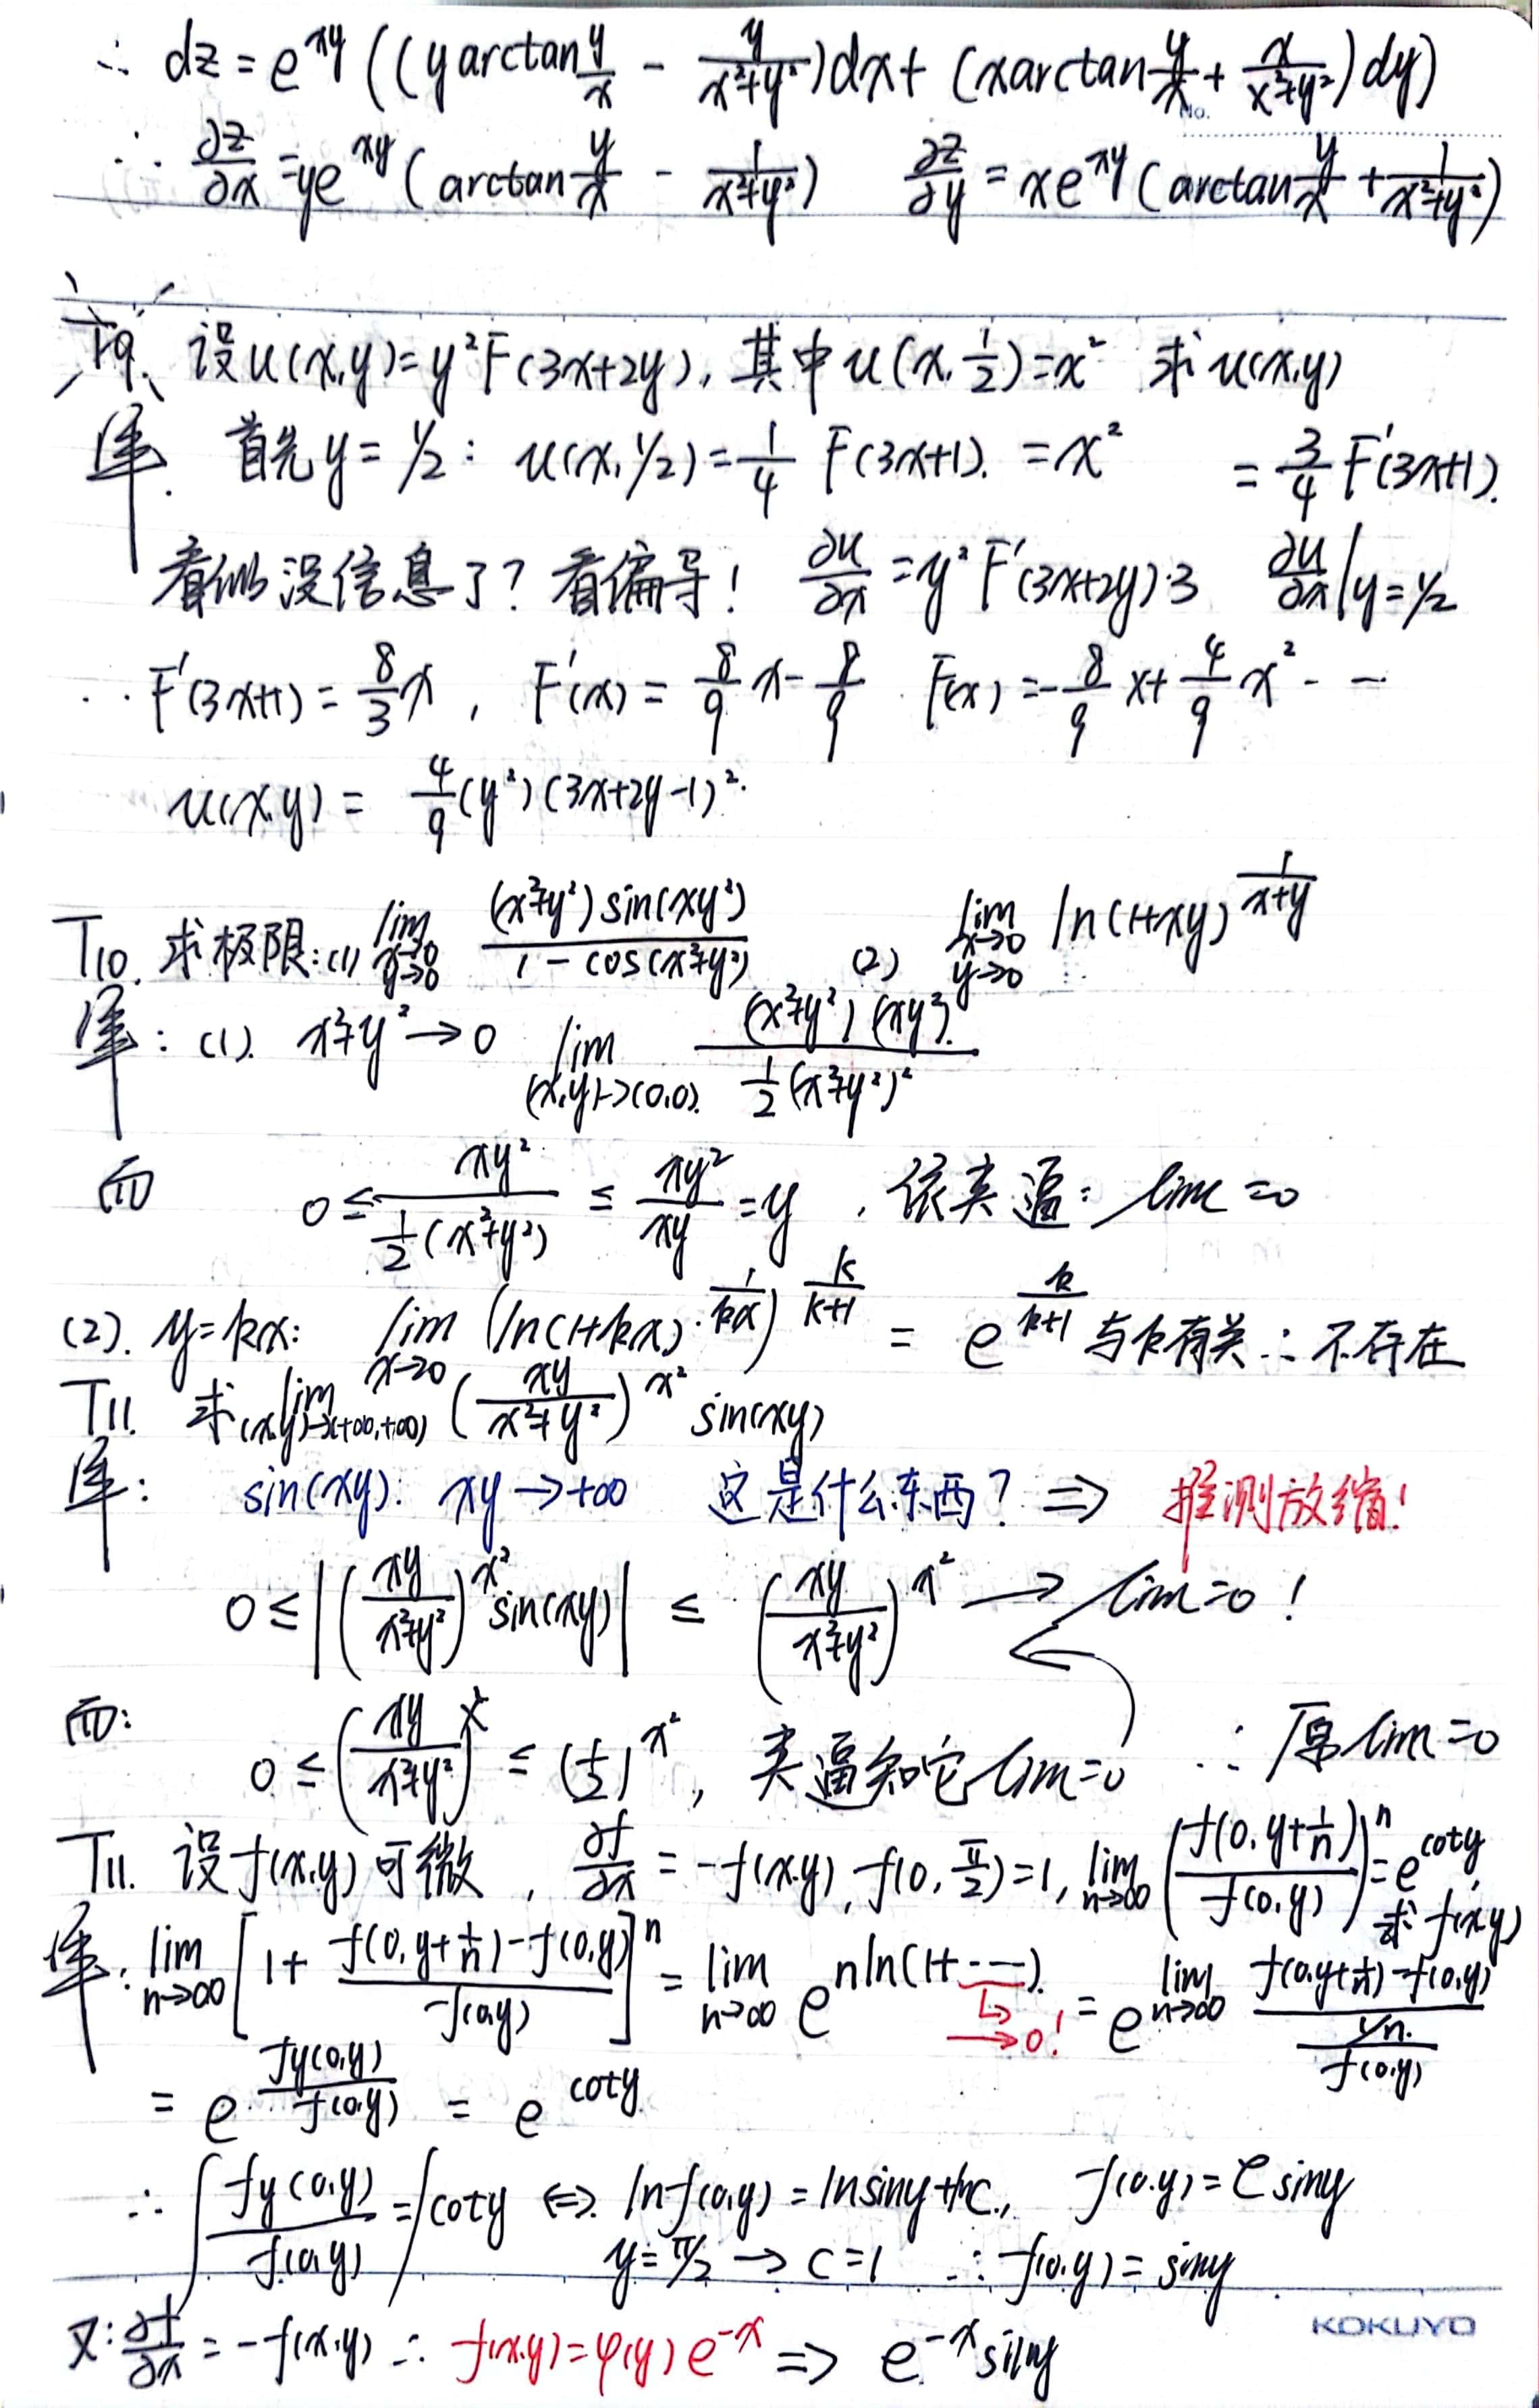 ∴ dz = e^{xy} ((y arctan y/x - y/(x²+y²))dx + (x arctan y/x + x/(x²+y²))dy)
No.
∴ ∂z/∂x = ye^{xy} (arctan y/x - 1/(x²+y²))   ∂z/∂y = xe^{xy} (arctan y/x + 1/(x²+y²))
T9. 设u(x,y)=y²F(3x+2y), 其中u(x,1/2)=x² 求u(x,y)
解. 首先y=1/2: u(x,1/2)=1/4 F(3x+1). =x²   = 3/4 F'(3x+1).
看似没信息了? 看偏导! ∂u/∂x = y²F'(3x+2y)·3   ∂u/∂x|y=1/2
∴ F'(3x+1) = 8/3 x, F'(x) = 8/9 x - 8/9   F(x) = -8/9 x + 4/9 x² - -
u(x,y) = 4/9 (y²)(3x+2y-1)².
T10. 求极限:(1) lim x→0 y→0 (x²+y²)sin(xy²)/(1-cos(x²+y²))   (2) lim x→0 y→0 ln(1+xy)^{1/(x+y)}
解: (1). x²+y²→0   lim (x,y)→(0,0). (x²+y²)(xy²)/(1/2 (x²+y²)²)
而 0 ≤ xy²/(1/2 (x²+y²)) ≤ xy²/xy = y, 依夹逼: lim =0
(2). y=kx: lim x→0 (ln(1+kx)·^{1/kx})^{k/(k+1)} = e^{k/(k+1)} 与k有关∴不存在
T11. 求 lim (x,y)→(+∞,+∞) (xy/(x²+y²))^{x²} sin(xy)
解: sin(xy): xy→+∞ 这是什么东西? ⇒ 推测放缩!
0 ≤ |(xy/(x²+y²))^{x²} sin(xy)| ≤ (xy/(x²+y²))^{x²} → lim=0 !
而: 0 ≤ (xy/(x²+y²))^{x²} ≤ (1/2)^{x²}, 夹逼知它lim=0 ∴ 原lim=0
T11. 设f(x,y)可微, ∂f/∂x = -f(x,y), f(0,π/2)=1, lim n→∞ (f(0,y+1/n)/f(0,y))^n = e^{coty}, 求f(x,y)
解: lim n→∞ [1 + (f(0,y+1/n)-f(0,y))/f(0,y)]^n = lim n→∞ e^{n ln(1+---)} ↳ →0! = e^{lim n→∞ (f(0,y+1/n)-f(0,y))/(1/n)/f(0,y)}
= e^{fy(0,y)/f(0,y)} = e^{coty}
∴ ∫ fy(0,y)/f(0,y) = ∫ coty ⇔ ln f(0,y) = ln siny + lnC., f(0,y) = C siny
y=π/2 → C=1 ∴ f(0,y) = siny
又: ∂f/∂x = -f(x,y) ∴ f(x,y)=φ(y)e^{-x} ⇒ e^{-x} siny
KOKUYO